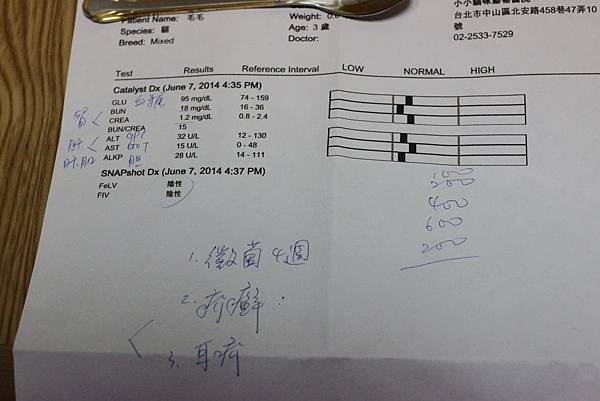 Patient Name: 毛毛
Species: 貓
Breed: Mixed
Weight: 0.
Age: 3 歲
Doctor:
台北市中山區北安路458巷47弄10
號
02-2533-7529
Test Results Reference Interval LOW NORMAL HIGH
Catalyst Dx (June 7, 2014 4:35 PM)
GLU 血糖 95 mg/dL 74 - 159
BUN 18 mg/dL 16 - 36
腎 < CREA 1.2 mg/dL 0.8 - 2.4
BUN/CREA 15
肝 < ALT GPT 32 U/L 12 - 130
AST GOT 15 U/L 0 - 48
肝.胆 ALKP 胆 28 U/L 14 - 111
SNAPshot Dx (June 7, 2014 4:37 PM)
FeLV 陰性
FIV 陰性
100
200
400
600
200
1. 黴菌 4週
2. 疥癬
3. 耳疥